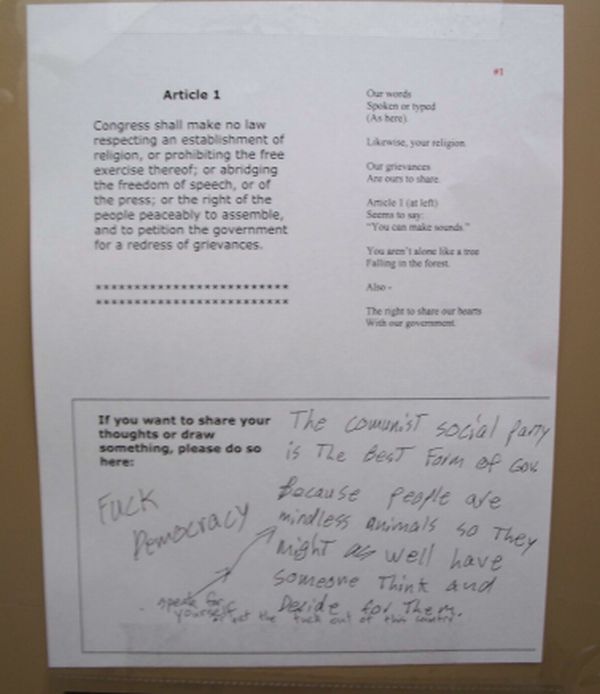 #1
Article 1
Congress shall make no law
respecting an establishment of
religion, or prohibiting the free
exercise thereof; or abridging
the freedom of speech, or of
the press; or the right of the
people peaceably to assemble,
and to petition the government
for a redress of grievances.
*************************
*************************
Our words
Spoken or typed
(As here).
Likewise, your religion
Our grievances
Are ours to share.
Article 1 (at left)
Seems to say:
"You can make sounds."
You aren't alone like a tree
Falling in the forest.
Also -
The right to share our hearts
With our government.
If you want to share your
thoughts or draw
something, please do so
here:
Fuck
Democracy
The comunist social party
is The Best Form of Gov
Because people are
mindless animals so They
might as well have
someone Think and
Decide for Them.
speak for
yourself
or get the fuck out of this country